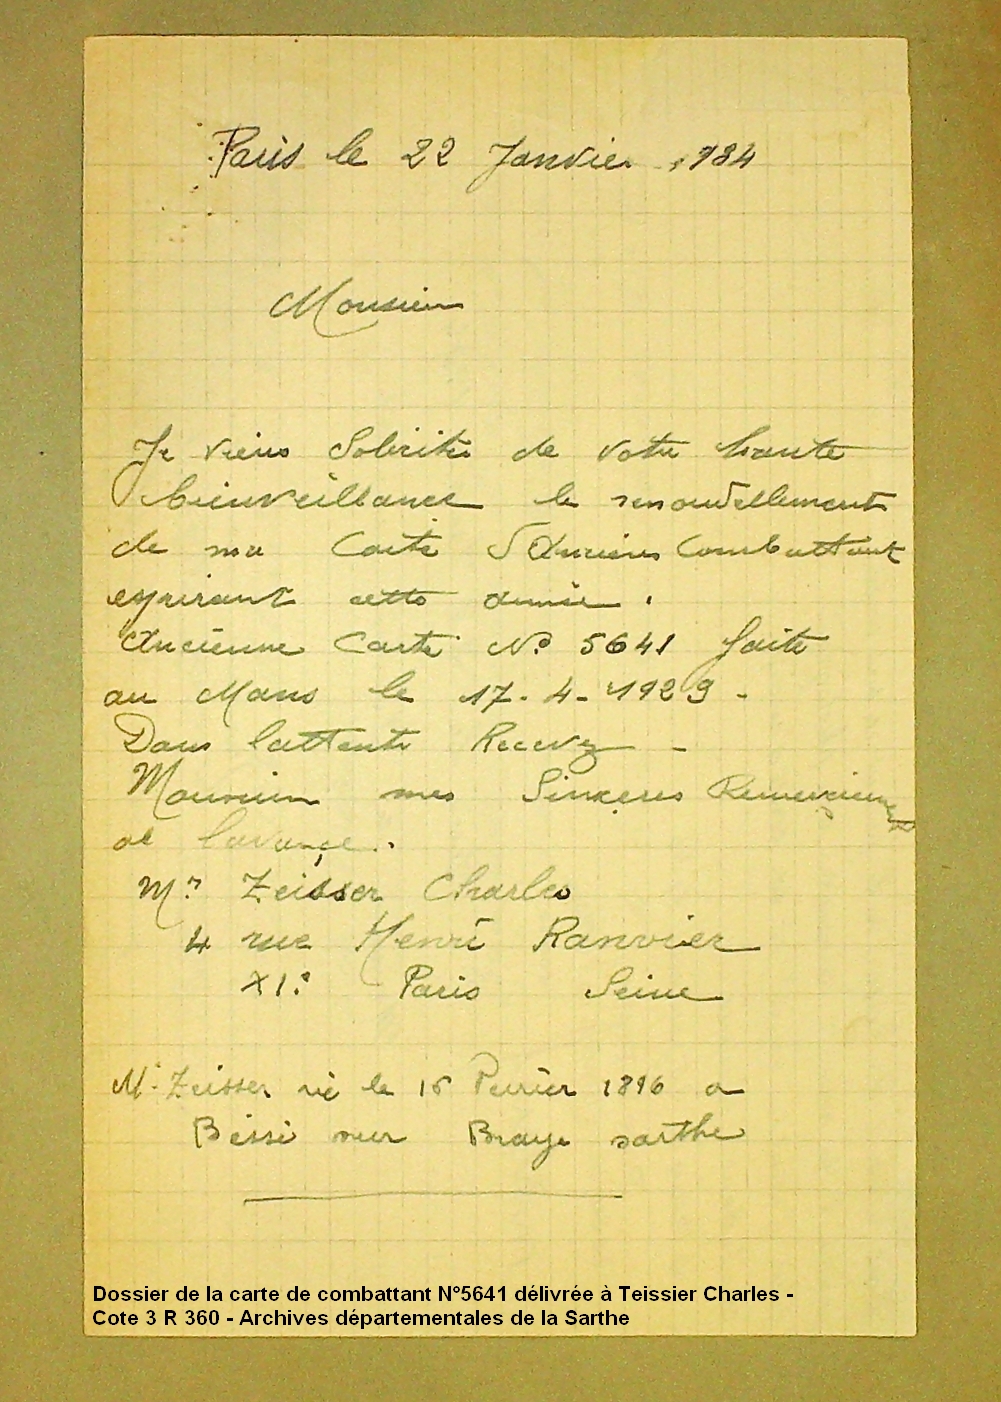 Paris le 22 Janvier 1934
Monsieur
Je viens Solicité de votre haute
bienveillance le renouvellement
de ma Carte d'Anciens Combattant
expirant cette année.
Ancienne Carte N° 5641 faite
au Mans le 17-4-1929-
Dans lattente Recevez -
Monsieur mes Sinceres Remerciements
a lavance..
Mr Zeisser Charles
4 rue Henri Ranvier
XI° Paris Seine
Mr Zeisser né le 16 1896 a
Béssé sur Braye sarthe
Dossier de la carte de combattant N°5641 délivrée à Teissier Charles -
Cote 3 R 360 - Archives départementales de la Sarthe